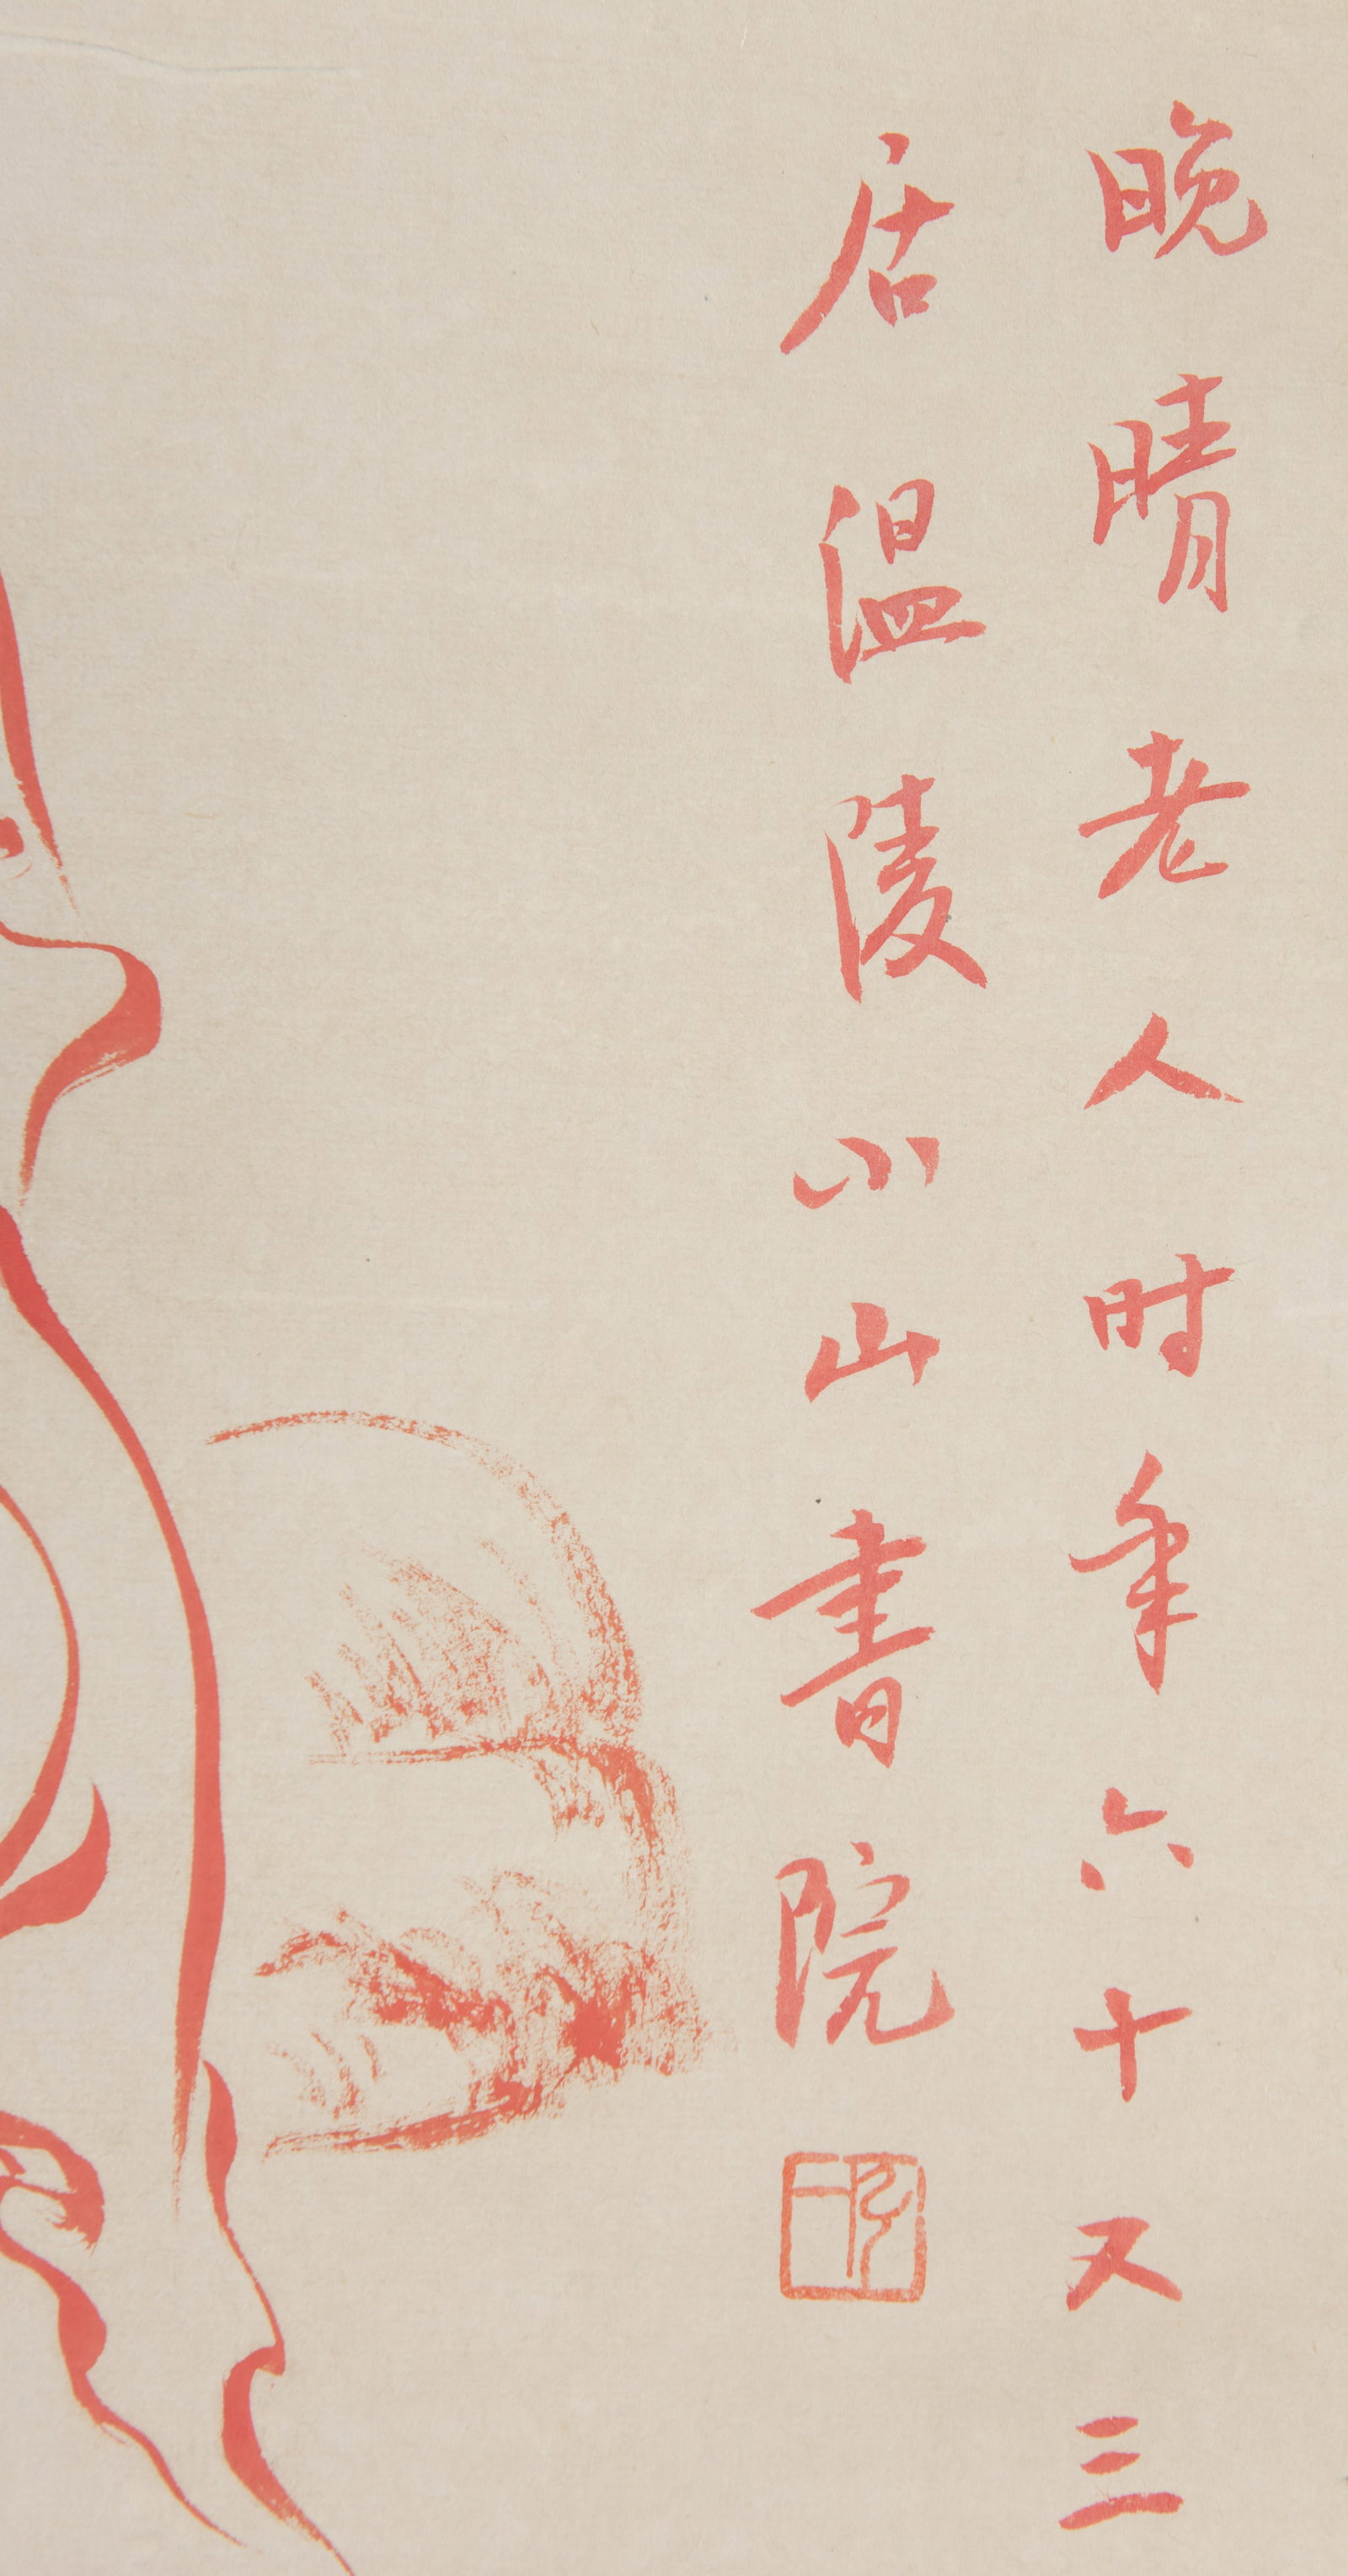 晚晴老人时年六十又三
居温陵小山書院